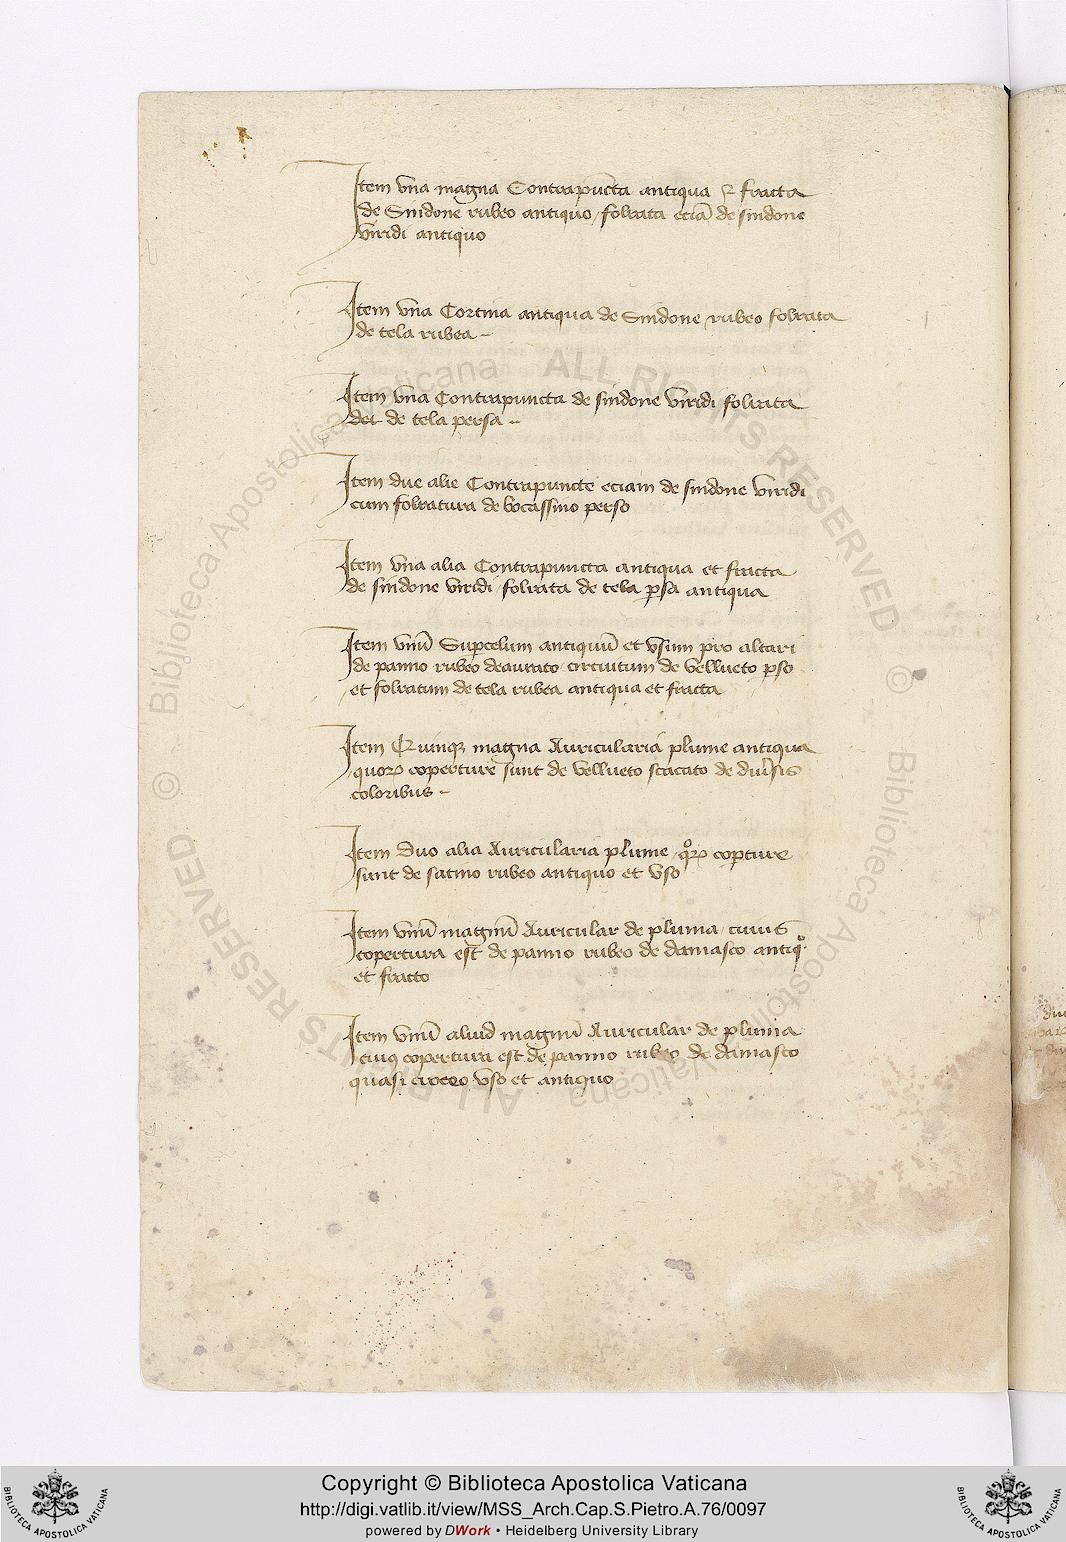 Item vna magna Contrapu͞cta antiqua & fracta
de Sindone rubeo antiquo / folrata eciā de sindone
viridi antiquo
Item vna Cortina antiqua de Sindone rubeo folrata
de tela rubea
Item vna Contrapuncta de sindone viridi folrata
de tela persa
Item due alie Contrapuncte eciam de sindone viridi
cum folratura de bocassino perso
Item vna alia Contrapuncta antiqua et fracta
de sindone viridi / folrata de tela ꝑsa antiqua
Item vnū Suꝑcelum antiquū et vsum pro altari
de panno rubeo deaurato circuitum de vellueto ꝑso
et folratum de tela rubea antiqua et fracta
Item Quinqꝫ magna Auricularia plume antiqua
quoꝝ coperture sunt de vellueto scacato de diu̾sis
coloribus
Item Duo alia Auricularia plume / qͦꝝ coꝑture
sunt de satino rubeo antiquo et vso
Item vnū magnū Auricular de pluma / cuius
copertura est de panno rubeo de damasco antiqͦ
et fracto
Item vnū aliud magnū Auricular de pluma
cuiꝰ copertura est de panno rubeo de damasco
quasi croceo vso et antiquo
ALL RIGHTS RESERVED © Biblioteca Apostolica Vaticana
ALL RIGHTS RESERVED © Biblioteca Apostolica Vaticana
Copyright © Biblioteca Apostolica Vaticana
http://digi.vatlib.it/view/MSS_Arch.Cap.S.Pietro.A.76/0097
powered by DWork • Heidelberg University Library
BIBLIOTECA APOSTOLICA VATICANA
BIBLIOTECA APOSTOLICA VATICANA